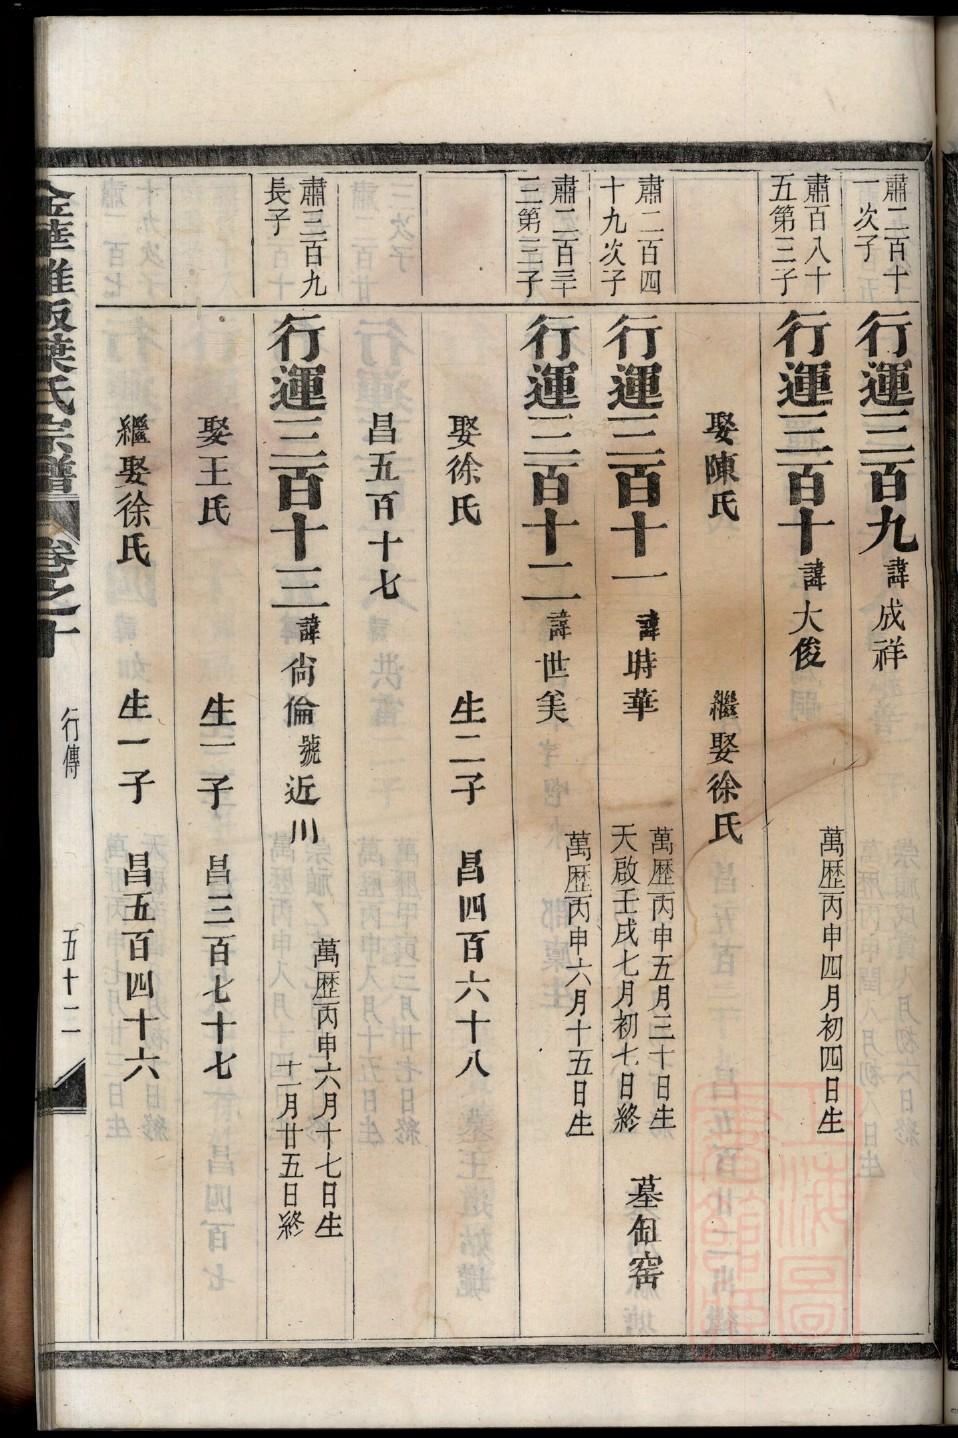 肅二百十
一次子
行運三百九 諱成祥
肅百八十
五第三子
行運三百十 諱大俊
萬歷丙申四月初四日生
娶陳氏 繼娶徐氏
肅二百四
十九次子
行運三百十一 諱時華
萬歷丙申五月三十日生
天啟壬戌七月初七日終
墓缸窑
肅二百三十
三第三子
行運三百十二 諱世美
萬歷丙申六月十五日生
娶徐氏 生二子 昌四百六十八
昌五百十七
肅三百九
長子
行運三百十三 諱尙倫 號近川
萬歷丙申六月十七日生
十一月廿五日終
娶王氏 生一子 昌三百七十七
繼娶徐氏 生一子 昌五百四十六
葉氏宗譜 卷之十 行傳 五十二